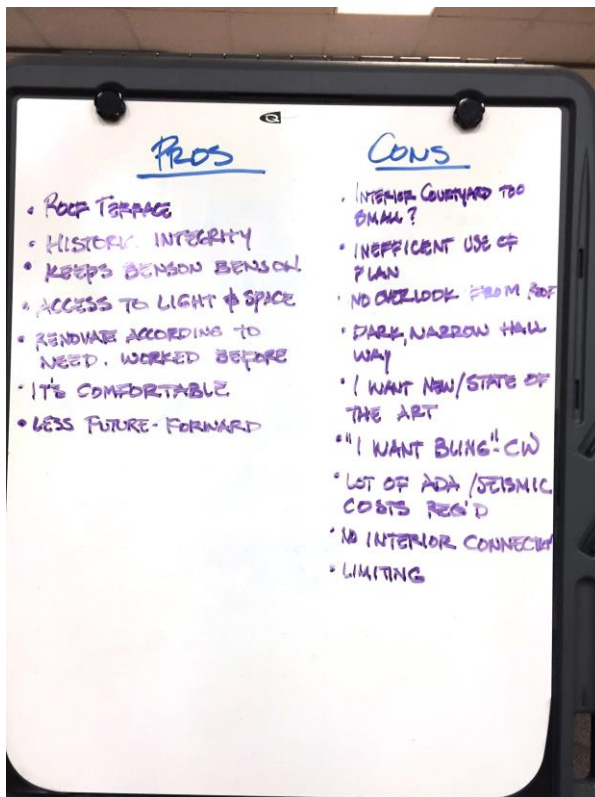 PROS
• ROOF TERRACE
• HISTORIC INTEGRITY
• KEEPS BENSON BENSON
• ACCESS TO LIGHT & SPACE
• RENOVATE ACCORDING TO
NEED. WORKED BEFORE
• IT'S COMFORTABLE
• LESS FUTURE-FORWARD
CONS
• INTERIOR COURTYARD TOO
SMALL?
• INEFFICENT USE OF
PLAN
• NO OVERLOOK FROM ROOF
• DARK, NARROW HALL
WAY
• I WANT NEW/STATE OF
THE ART
• "I WANT BLING"-CW
• LOT OF ADA/SEISMIC
COSTS REQ'D
• NO INTERIOR
• LIMITING